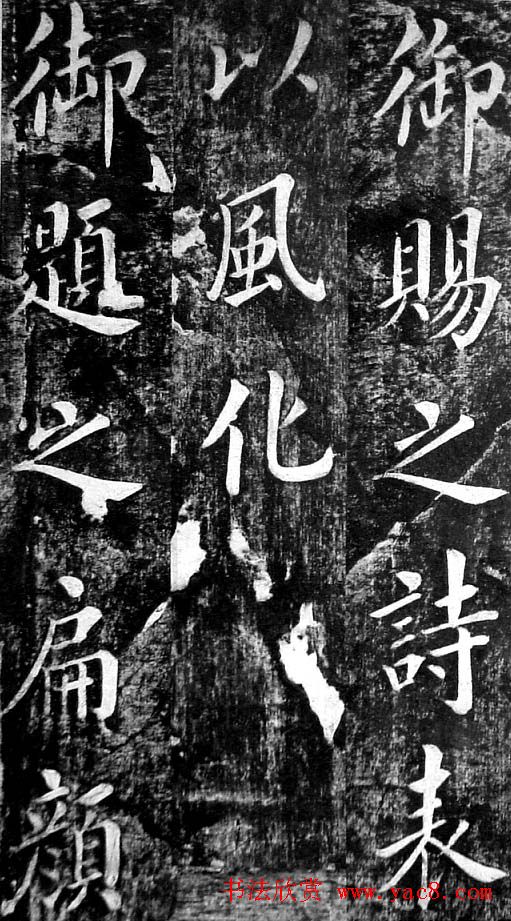 御賜之詩表
以風化
御題之扁顔
书法欣赏 www.yac8.com